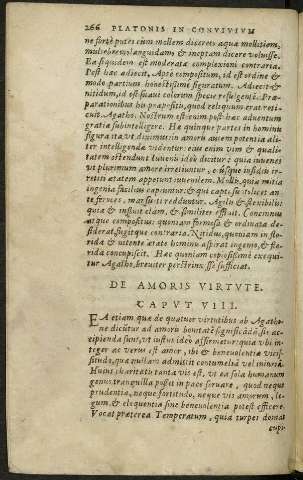 266 PLATONIS IN CONVIVIVM
ne fortè putes cùm mollem diceret aquæ mollitiem,
muliebrem, languidam, & ineptam dicere voluisse.
Ea siquidem est moderatæ complexioni contraria.
Post hæc adiecit, Aptè compositum, id est ordine &
modo partium honestissimè figuratum. Adiecit &
nitidum, id est suaui colorum specie refulgente. Præ-
parationibus his propositis, quod reliquum erat reti-
cuit Agatho. Nostrum est enim post hæc aduentum
gratiæ subintelligere. Hæ quinque partes in hominis
figura ita vt diximus: in amoris autem potentia ali-
ter intelligendæ videntur. eius enim vim & quali-
tatem ostendunt. Iuuenis ideò dicitur; quia iuuenes
vt plurimum amore irretiuntur, eiúsque insidiis ir-
retiti ætatem appetunt iuuenilem. Mollis, quia mitia
ingenia facilius capiuntur. & qui capti, si vel sint an-
te feroces, mansueti redduntur. Agilis & flexibilis:
quia & influit clam, & similiter effluit. Concinnus
atque compositus: quoniam formosa & ordinata de-
siderat, fugitque contraria. Nitidus, quoniam in flo-
rida & nitente ætate hominis aspirat ingenio, & flo-
rida concupiscit. Hæc quoniam copiosissimè exequi-
tur Agatho, breuiter perstrinxisse sufficiat.
DE AMORIS VIRTVTE.
CAPVT VIII.
EA etiam quæ de quatuor virtutibus ab Agatho-
ne dicitur ad amoris bonitatē significādā, sic ac-
cipienda sunt, vt iustus ideo asseratur: quia vbi in-
teger ac verus est amor, ibi & beneuolentia vicis-
situdo, quæ nullam admittit contumeliā vel iniuriā.
Huius charitatis tanta vis est, vt ea sola humanum
genus tranquilla possit in pace seruare, quod neque
prudentia, neque fortitudo, neque vis armorum, le-
gum, & eloquentiæ sine beneuolentia potest efficere.
Vocat præterea Temperatum, quia turpes domat
cupi-